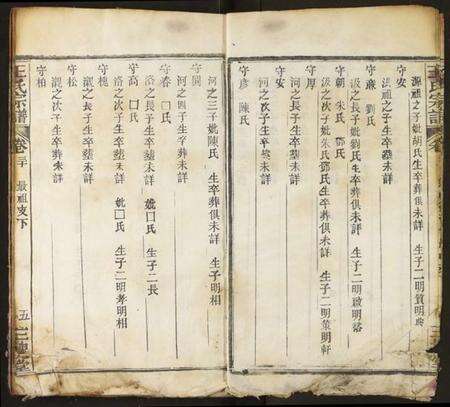 源祖之子妣胡氏生卒葬俱未詳　生子二明質明
守安
洪祖之子生卒葬未詳
守廉　劉氏
汲之長子妣劉氏生卒葬俱未詳　生子二明啟明
守朝　朱氏　鄧氏
汲之次子妣朱氏鄧氏生卒葬俱未詳　生子二明策明軒
守厚
河之長子生卒葬未詳
守安
河之次子生卒葬未詳
守彥　陳氏
河之三子妣陳氏　生卒葬俱未詳　生子明相
守興
河之四子生卒葬未詳
守春　囗氏
洛之長子生卒葬未詳　妣囗氏　生子二長
守高　囗氏
洛之次子生卒葬未詳　妣囗氏　生子二明孝明相
守槐
之長子生卒塟未詳
守松
之次子生卒葬未詳
守柏
王氏宗譜　卷　最祖支下　五　三槐堂